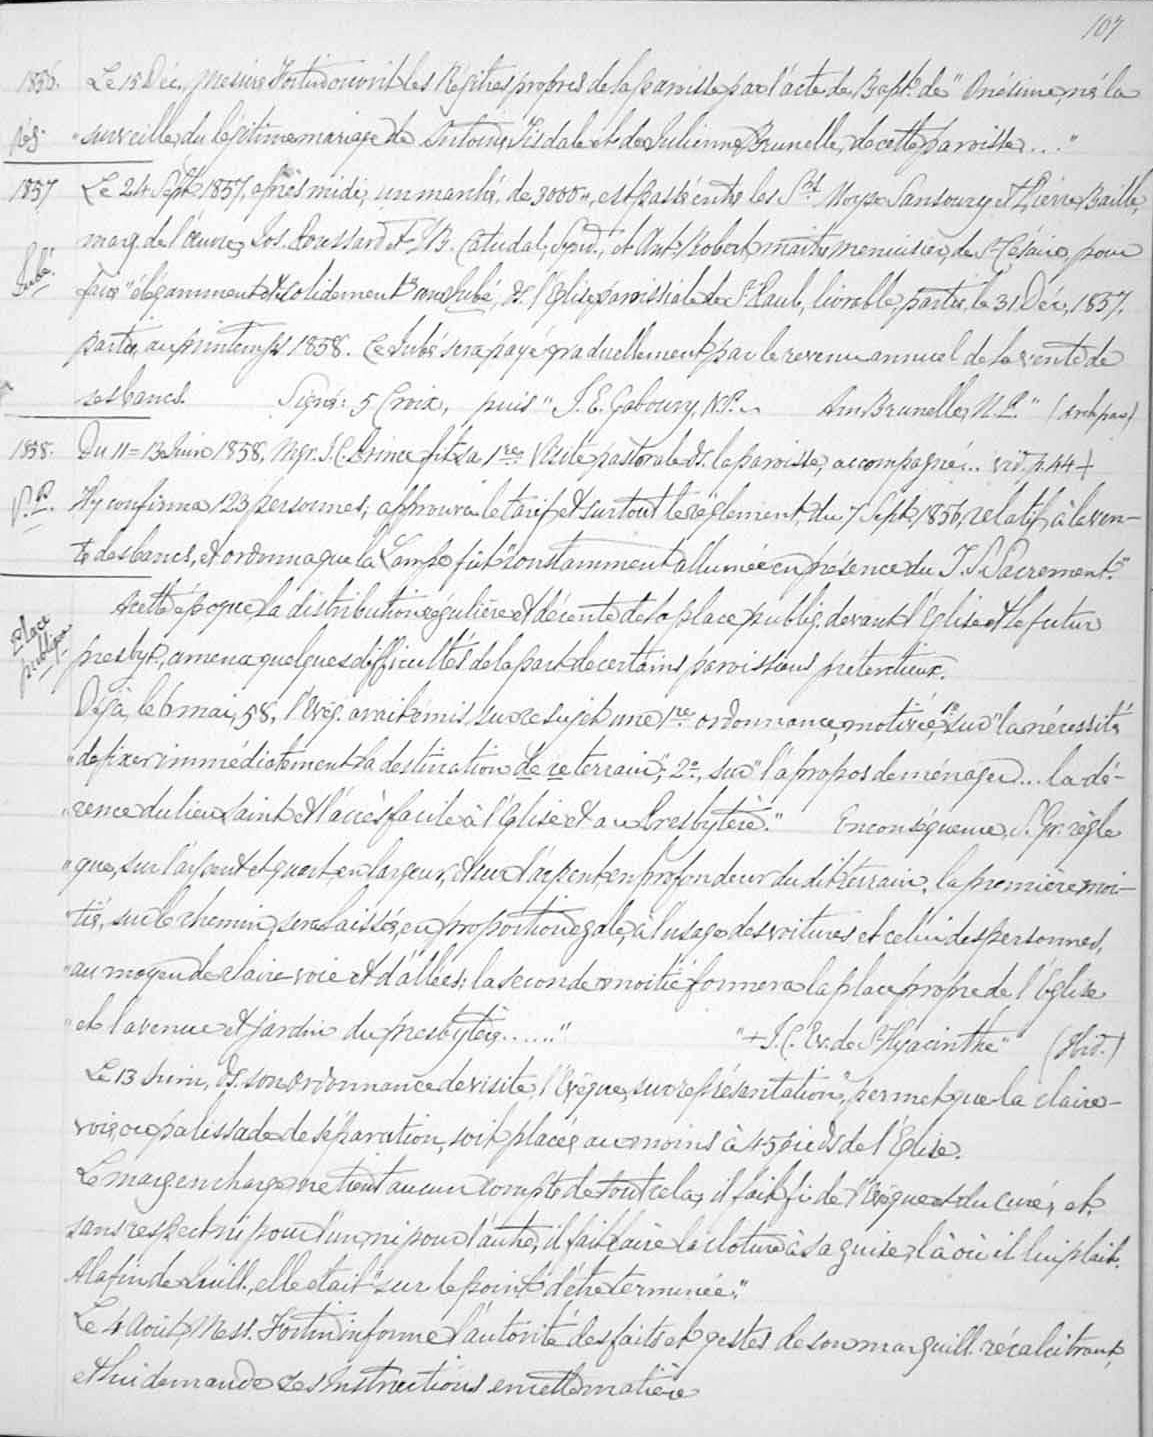 107
1856. Le 15 Déc, Messire Fortin ouvrit les Régitres propres de la paroisse par l'acte de Bapt. de "Onésime, né la
Rég. "surveille, du légitime mariage de Antoine Tisdale et de Julienne Brunelle, de cette paroisse..."
1857 Le 24 Sept 1857, après midi, un marché, de 3000 est passé entre les Srs Moyse Sansoucy et Pierre Baille,
marg. de l'œuvre, Jos. Brossard et J B. Catudal, Synd., et Ant. Robert, maître menuisier, de St Césaire, pour
Jubé. faire "élégamment et solidement" un Jubé, ds. l'Eglise paroissiale de St Paul, livrable, partie, le 31 Déc, 1857,
partie, au printemps 1858. Ce Jubé sera payé graduellement par le revenu annuel de la vente de
ses bancs. Signé: 5 Croix, puis "J. E. Gaboury, N.P. Am Brunelle, N.P." (Arch. par.)
1858. Du 11 = 13 Juin 1858, Mgr. J. C. Prince fit sa 1re Visite pastorale ds. la paroisse, accompagné... vid. p. 44 +
V.P. Il y confirma 123 personnes; approuva le tarif et surtout le règlement, du 7 Sept. 1856, relatif à la ven-
te des bancs, et ordonna que la Lampe fût "constamment allumée en présence du T. S. Sacrement."
Place publique A cette époque, la distribution régulière et décente de la place publiq. devant l'Eglise et le futur
presbyt., amena quelques difficultés de la part de certains paroissiens prétentieux.
Déjà, le 6 mai, 58, l'Evêq. avait émis, sur ce sujet une 1re ordonnance, motivée, 1º sur "la nécessité
"de fixer immédiatement la destination de ce terrain"; 2º, sur "l'à propos de ménager... la dé-
"cence du lieu saint et l'accès facile à l'Eglise et au Presbytère." En conséquence, S. Gr. règle
"que, sur l'arpent et quart, en largeur, et sur l'arpent, en profondeur du dit terrain, la première moi-
tié, sur le chemin, sera laissée, en proportion égale, à l'usage des voitures et celui des personnes,
"au moyen de claire-voie et d'allées; la seconde moitié formera la place propre de l'Eglise
"et l'avenue et jardin du presbytère......" "+ J. C. Ev. de St Hyacinthe" (Ibid.)
Le 13 Juin, ds. son ordonnance de visite, l'Evêque, sur représentation, permet que la claire-
voie, ou palissade de séparation, soit placée au moins à 45 pieds de l'Eglise.
Le marg en charge ne tient aucun compte de tout cela, il fait fi de l'Evêque et du Curé, et,
sans respect ni pour l'un, ni pour l'autre, il fait faire la cloture à sa guise, là où il lui plait.
A la fin de Juill., elle était "sur le point d'être terminée."
Le 4 Août, Mess. Fortin informe l'autorité des faits et gestes de son marguill. récalcitrant,
et lui demande ses instructions en cette matière